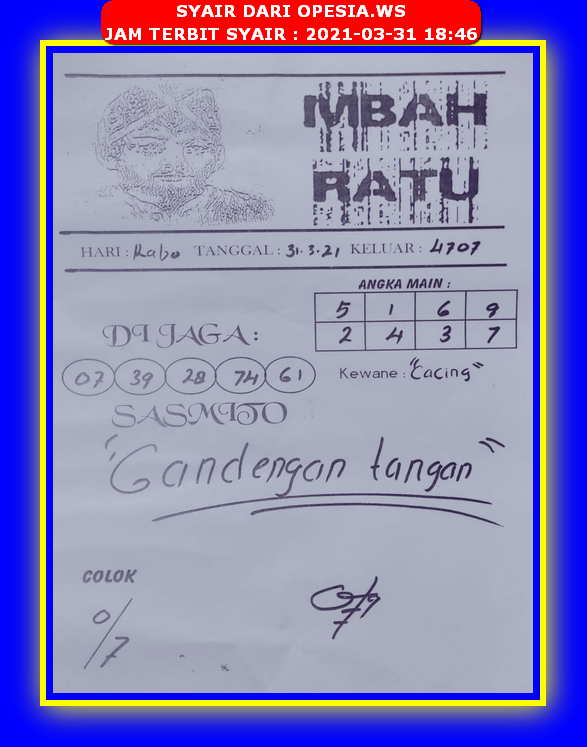 SYAIR DARI OPESIA.WS
JAM TERBIT SYAIR : 2021-03-31 18:46
MBAH
RATU
HARI : Rabo TANGGAL : 31.3.21 KELUAR : 4707
ANGKA MAIN :
5 1 6 9
2 4 3 7
DI JAGA :
07 39 28 74 61
Kewane : "Cacing"
SASMITO
"Gandengan tangan"
COLOK
0/7